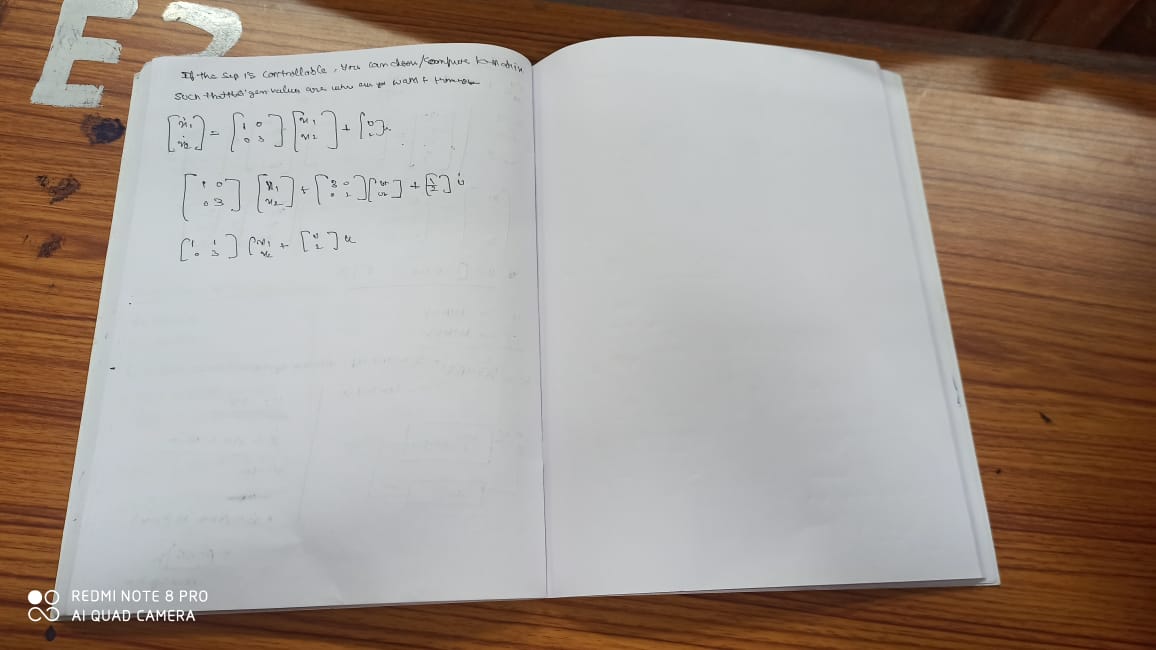 E2
If the sys is controllable, you can choose/compute K matrix
such that the eigen values are where ever you want them to be
[ẋ1 ẋ2] = [1 0 0 3] [x1 x2] + [0 1]u
[1 0 0 3] [x1 x2] + [3 0 0 1] [u1 u2] + [1 2] u
[1 1 0 3] [x1 x2 + [0 1] u
REDMI NOTE 8 PRO
AI QUAD CAMERA